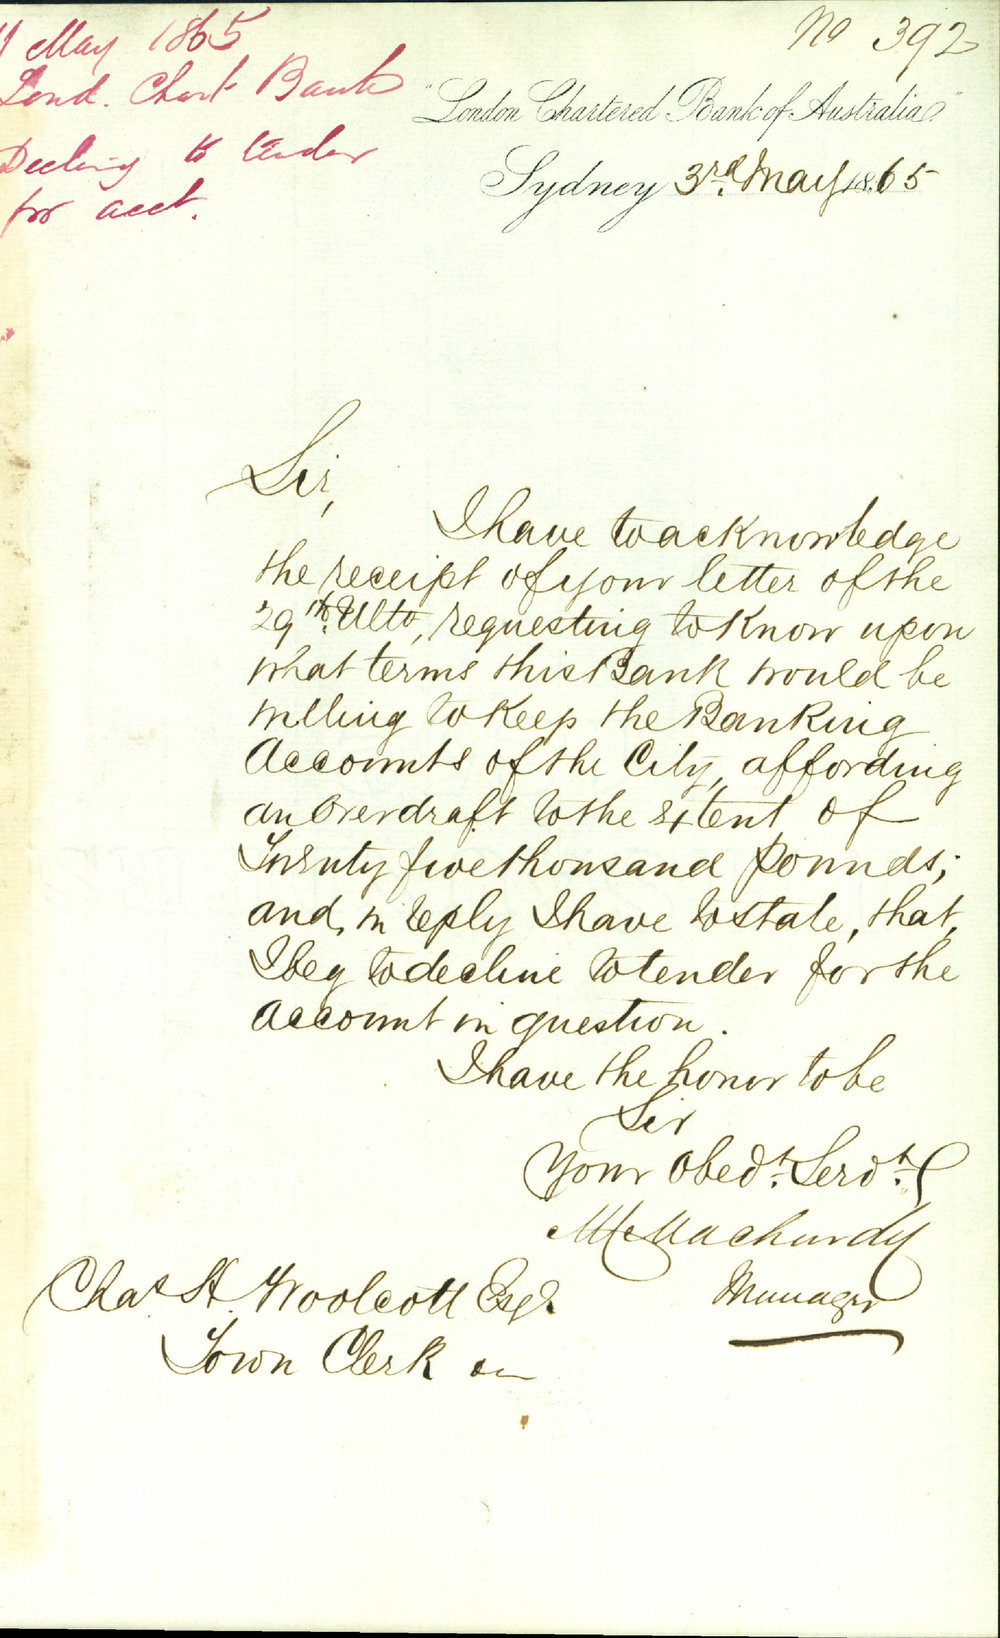 May 1865
Lond. Chart Bank
Decling to tender
for acct.
No 392
"London Chartered Bank of Australia."
Sydney 3rd May 1865
Sir,
I have to acknowledge
the receipt of your letter of the
29th Ulto, requesting to know upon
what terms this Bank would be
willing to keep the Banking
Accounts of the City, affording
an Overdraft to the extent of
Twenty five thousand pounds;
and, in reply I have to state, that,
I beg to decline to tender for the
account in question.
I have the honor to be
Sir
Your Obedt. Servt.
Manager
Chas. H. Woolcott Esqr.
Town Clerk